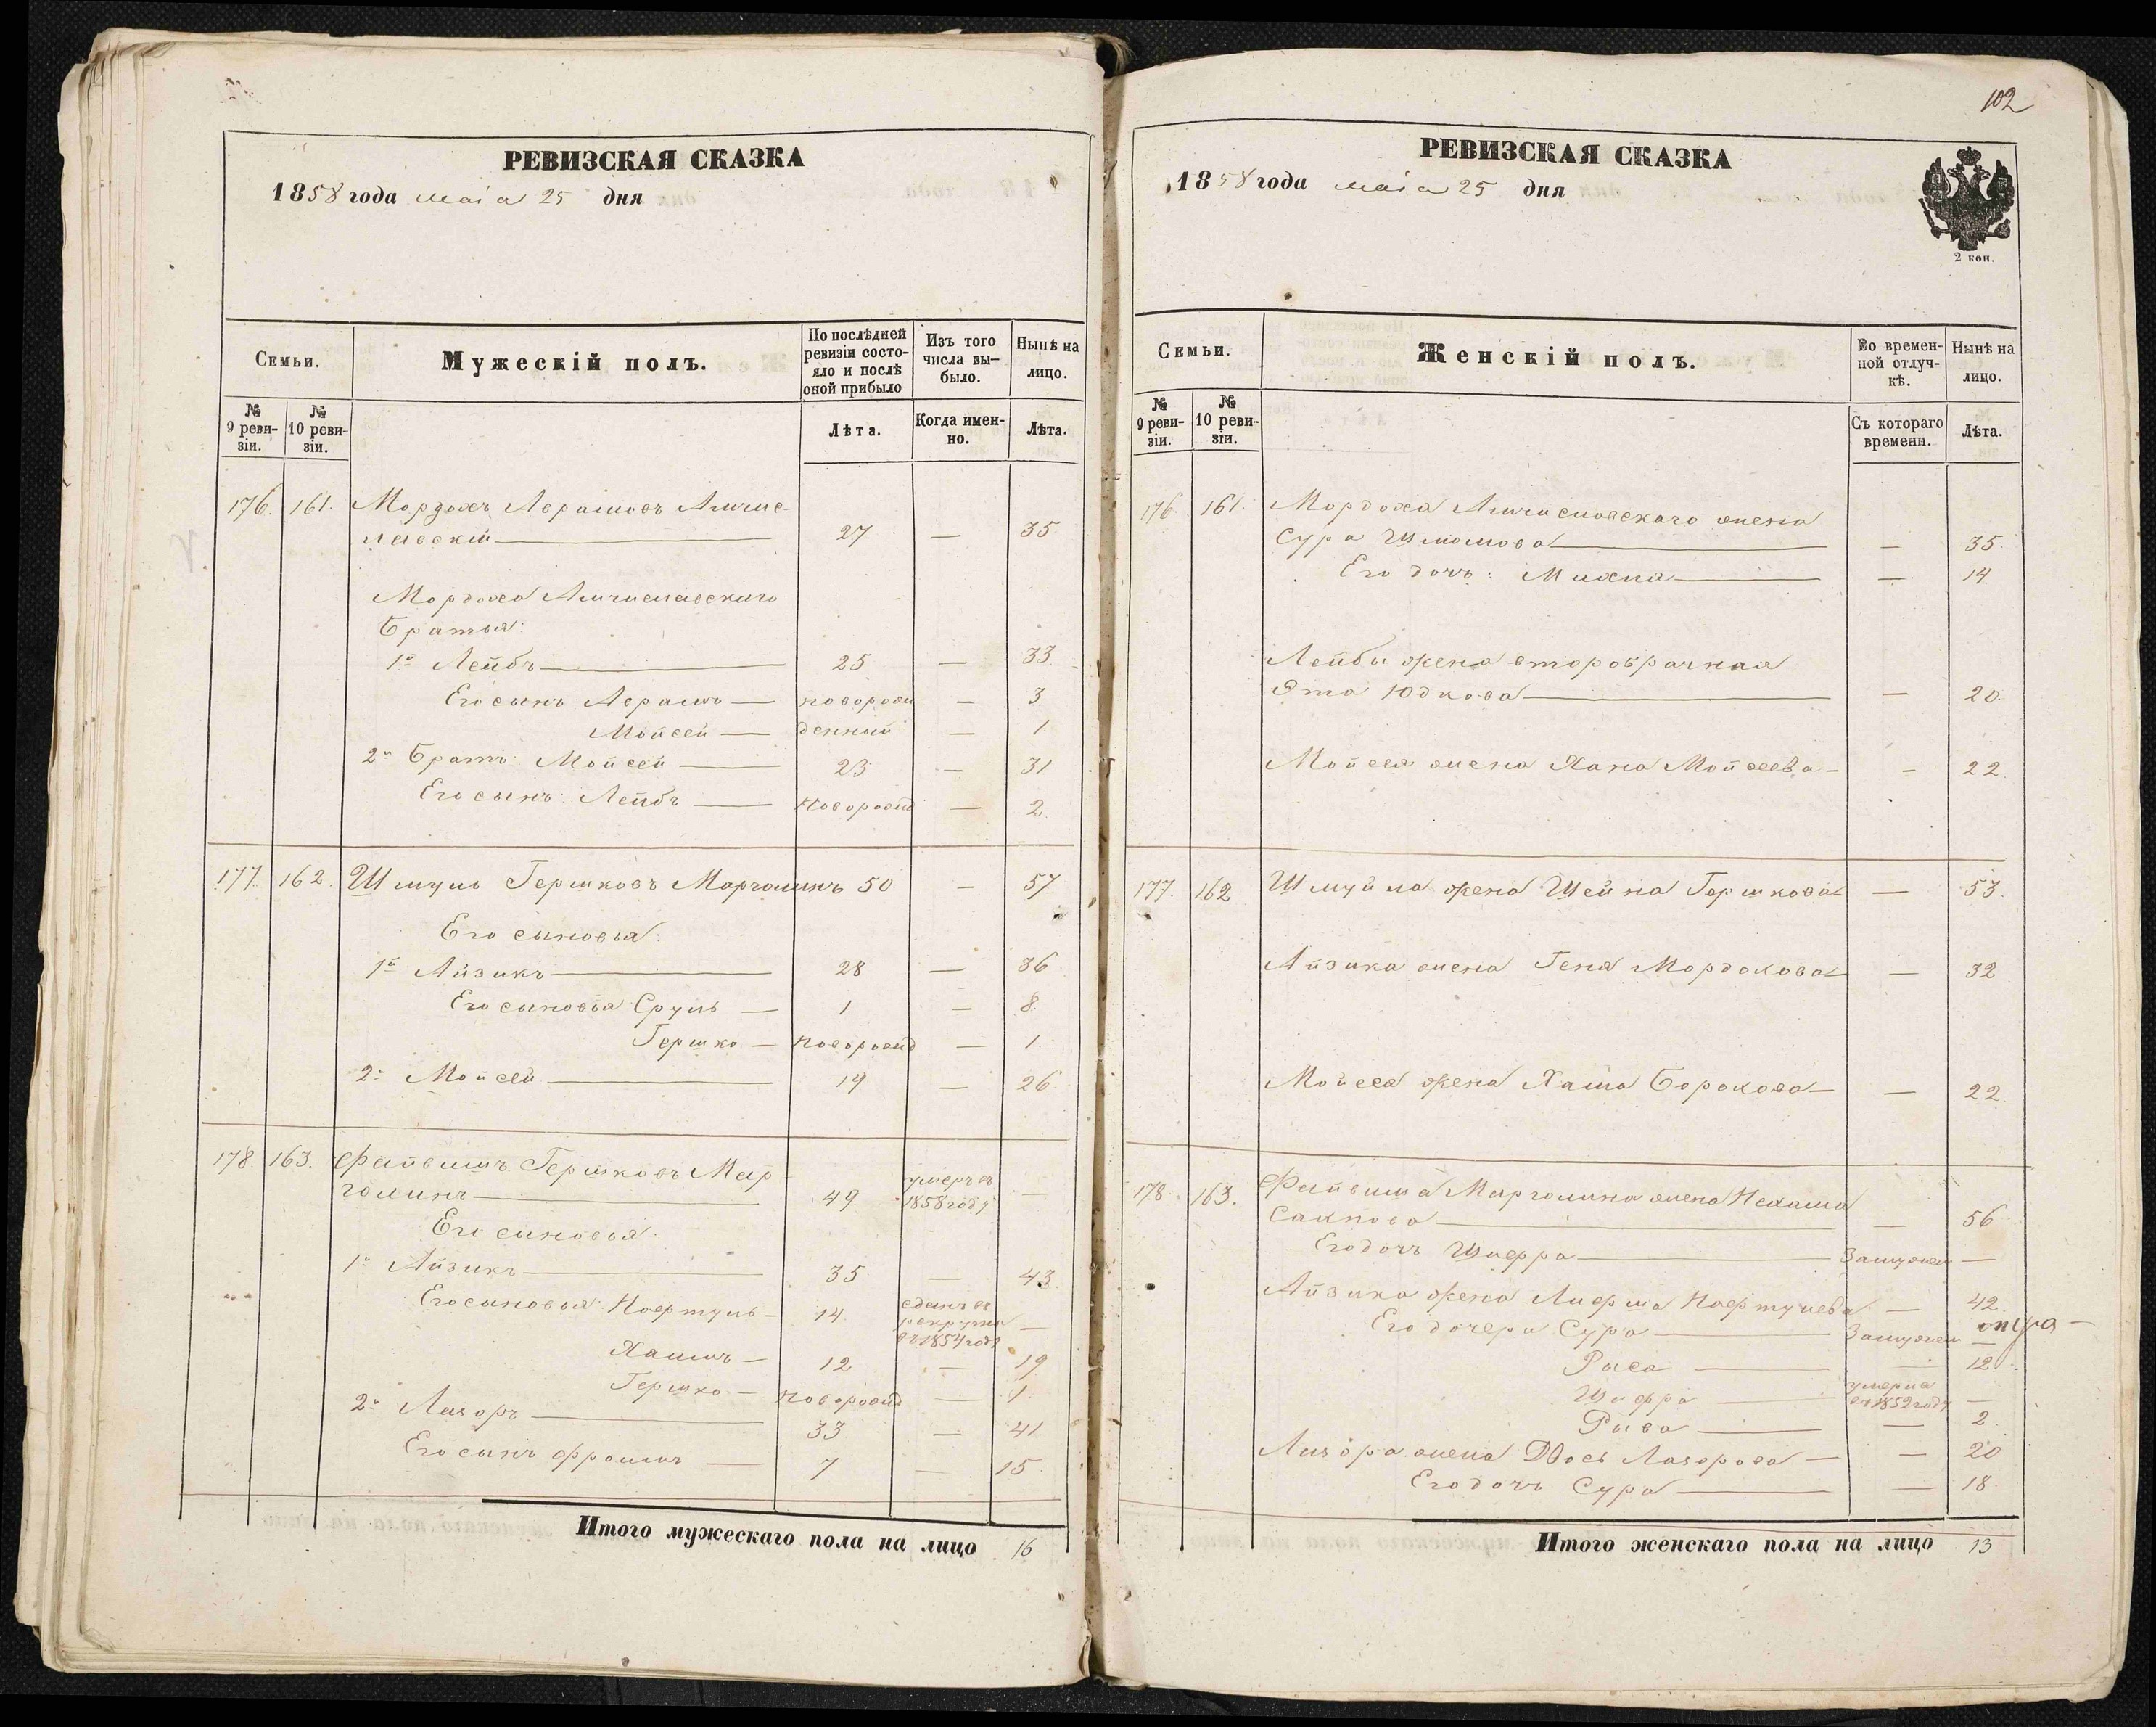 РЕВИЗСКАЯ СКАЗКА
1858 года маія 25 дня
Семьи.
Мужескій полъ.
По послѣдней ревизіи состояло и послѣ оной прибыло
Изъ того числа вы-было.
Нынѣ на лицо.
№ 9 реви-зіи.
№ 10 реви-зіи.
Лѣта.
Когда имен-но.
Лѣта.
176. 161. Мордохъ Аврамовъ Амчис-
лавскій 27 — 35
Мордоха Амчиславскаго
братья:
1й Лейбъ 25 — 33.
Его сынъ Аврамъ — новорож — 3
Мойсей — денный — 1
2й братъ Мойсей 23 — 31
Его сынъ Лейбъ — новорожд — 2
177. 162. Шмуль Гершковъ Марголинъ 50 — 57
Его сыновья:
1й Айзикъ 28 — 36
Его сыновья Сруль — 1 — 8.
Гершко — новорожд — 1.
2й Мойсей 19 — 26.
178. 163. Файвишъ Гершковъ Мар
голинъ 49 умеръ въ 1858 году —
Его сыновья:
1й Айзикъ 35 — 43.
Его сыновья Нафтуль — 14 сданъ въ рекруты въ 1854 году —
Хаимъ — 12 — 19
Гершко — новорожд — 1.
2й Лазоръ 33 — 41
Его сынъ Фроимъ — 7 — 15.
Итого мужескаго пола на лицо 16
102
РЕВИЗСКАЯ СКАЗКА
1858 года маія 25 дня
2 коп.
Семьи.
Женскій полъ.
Во времен-ной отлуч-кѣ.
Нынѣ на лицо.
№ 9 реви-зіи.
№ 10 реви-зіи.
Съ котораго времени.
Лѣта.
176 161. Мордоха Амчиславскаго жена
Сура Шмомова — 35.
Его дочь: Михна — 14
Лейбы жена второбрачная
Эта Юдкова — 20.
Мойсея жена Хана Мойсеева — — 22
177. 162 Шмуйла жена Шейна Гершкова — 53.
Айзика жена Геня Мордохова — 32
Мойсея жена Хаша Борохова — — 22
178 163. Файвиша Марголина жена Нехама
— 56
Его дочь Шифра Замужем —
Айзика жена Нафтулева — 42
Его дочери Сура Замужем —
Раса — 12
Шифра умерла въ 1852 году —
Рива — 2.
Лазора жена Лазорова — — 20
Его дочь Сура — 18.
Итого женскаго пола на лицо 13